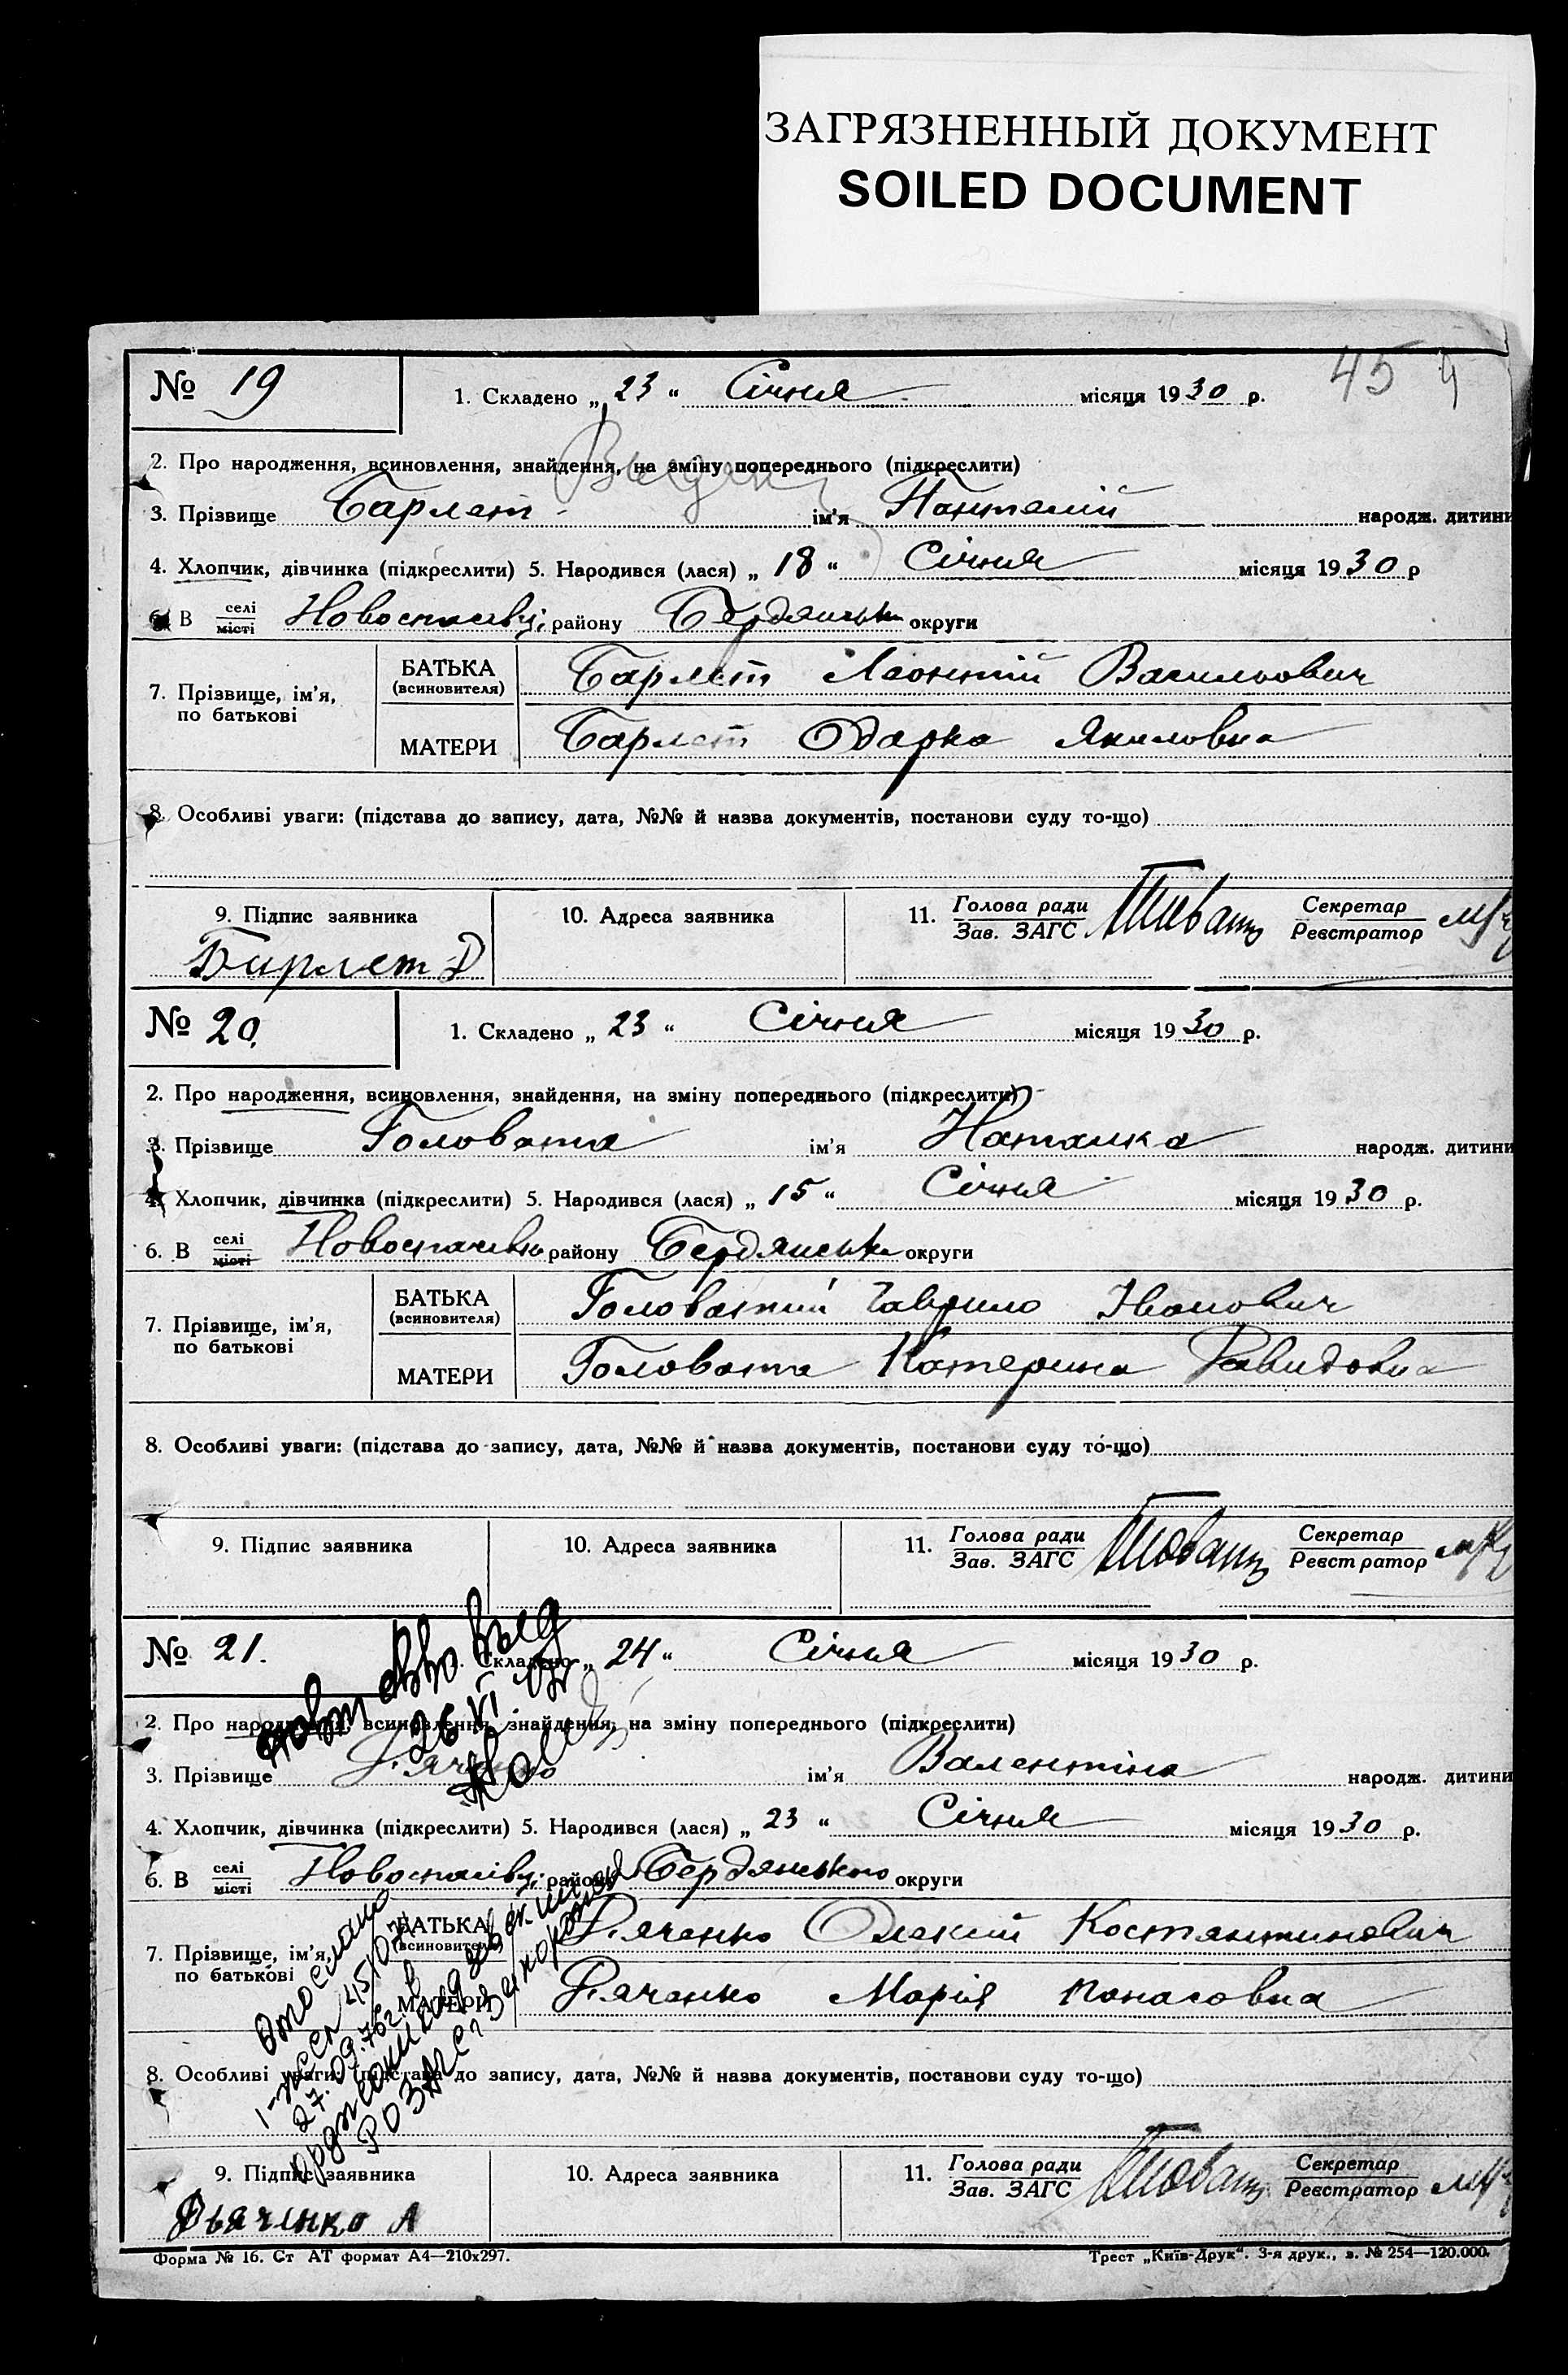 ЗАГРЯЗНЕННЫЙ ДОКУМЕНТ
SOILED DOCUMENT
45
№ 19
1. Складено „ 23 “ Січня місяця 1930 р.
2. Про народження, всиновлення, знайдення, на зміну попереднього (підкреслити)
3. Прізвище Барлет ім'я Пантелій народж. дитини
4. Хлопчик, дівчинка (підкреслити) 5. Народився (лася) „ 18 “ Січня місяця 1930 р
6. В селі/місті Новоспасівці району Бердянськ округи
7. Прізвище, ім'я, по батькові
БАТЬКА (всиновителя) Барлет Леонтій Васильович
МАТЕРИ Барлет Одарка Якиловна
8. Особливі уваги: (підстава до запису, дата, №№ й назва документів, постанови суду то-що)
9. Підпис заявника 10. Адреса заявника 11. Голова ради/Зав. ЗАГС Секретар/Реєстратор
Барлет Д
№ 20.
1. Складено „ 23 “ Січня місяця 1930 р.
2. Про народження, всиновлення, знайдення, на зміну попереднього (підкреслити)
3. Прізвище Головата ім'я Наталка народж. дитини
4. Хлопчик, дівчинка (підкреслити) 5. Народився (лася) „ 15 “ Січня місяця 1930 р.
6. В селі/місті району Бердянськ округи
7. Прізвище, ім'я, по батькові
БАТЬКА (всиновителя) Головатий Гаврило Іванович
МАТЕРИ Головата Катерина Давидовна
8. Особливі уваги: (підстава до запису, дата, №№ й назва документів, постанови суду то-що)
9. Підпис заявника 10. Адреса заявника 11. Голова ради/Зав. ЗАГС Секретар/Реєстратор
№ 21.
1. Складено „ 24 “ Січня місяця 1930 р.
2. Про народження, всиновлення, знайдення, на зміну попереднього (підкреслити)
3. Прізвище Дяченко ім'я Валентіна народж. дитини
4. Хлопчик, дівчинка (підкреслити) 5. Народився (лася) „ 23 “ Січня місяця 1930 р.
6. В селі/місті Новоспасівці району Бердянського округи
7. Прізвище, ім'я, по батькові
БАТЬКА (всиновителя) Дяченко Олекий Костянтинович
МАТЕРИ Дяченко Марія Панасовна
8. Особливі уваги: (підстава до запису, дата, №№ й назва документів, постанови суду то-що)
9. Підпис заявника 10. Адреса заявника 11. Голова ради/Зав. ЗАГС Секретар/Реєстратор
Дьяченко А
Форма № 16. Ст АТ формат А4—210х297.
Трест „Київ-Друк“. 3-я друк., з. № 254—120.000.